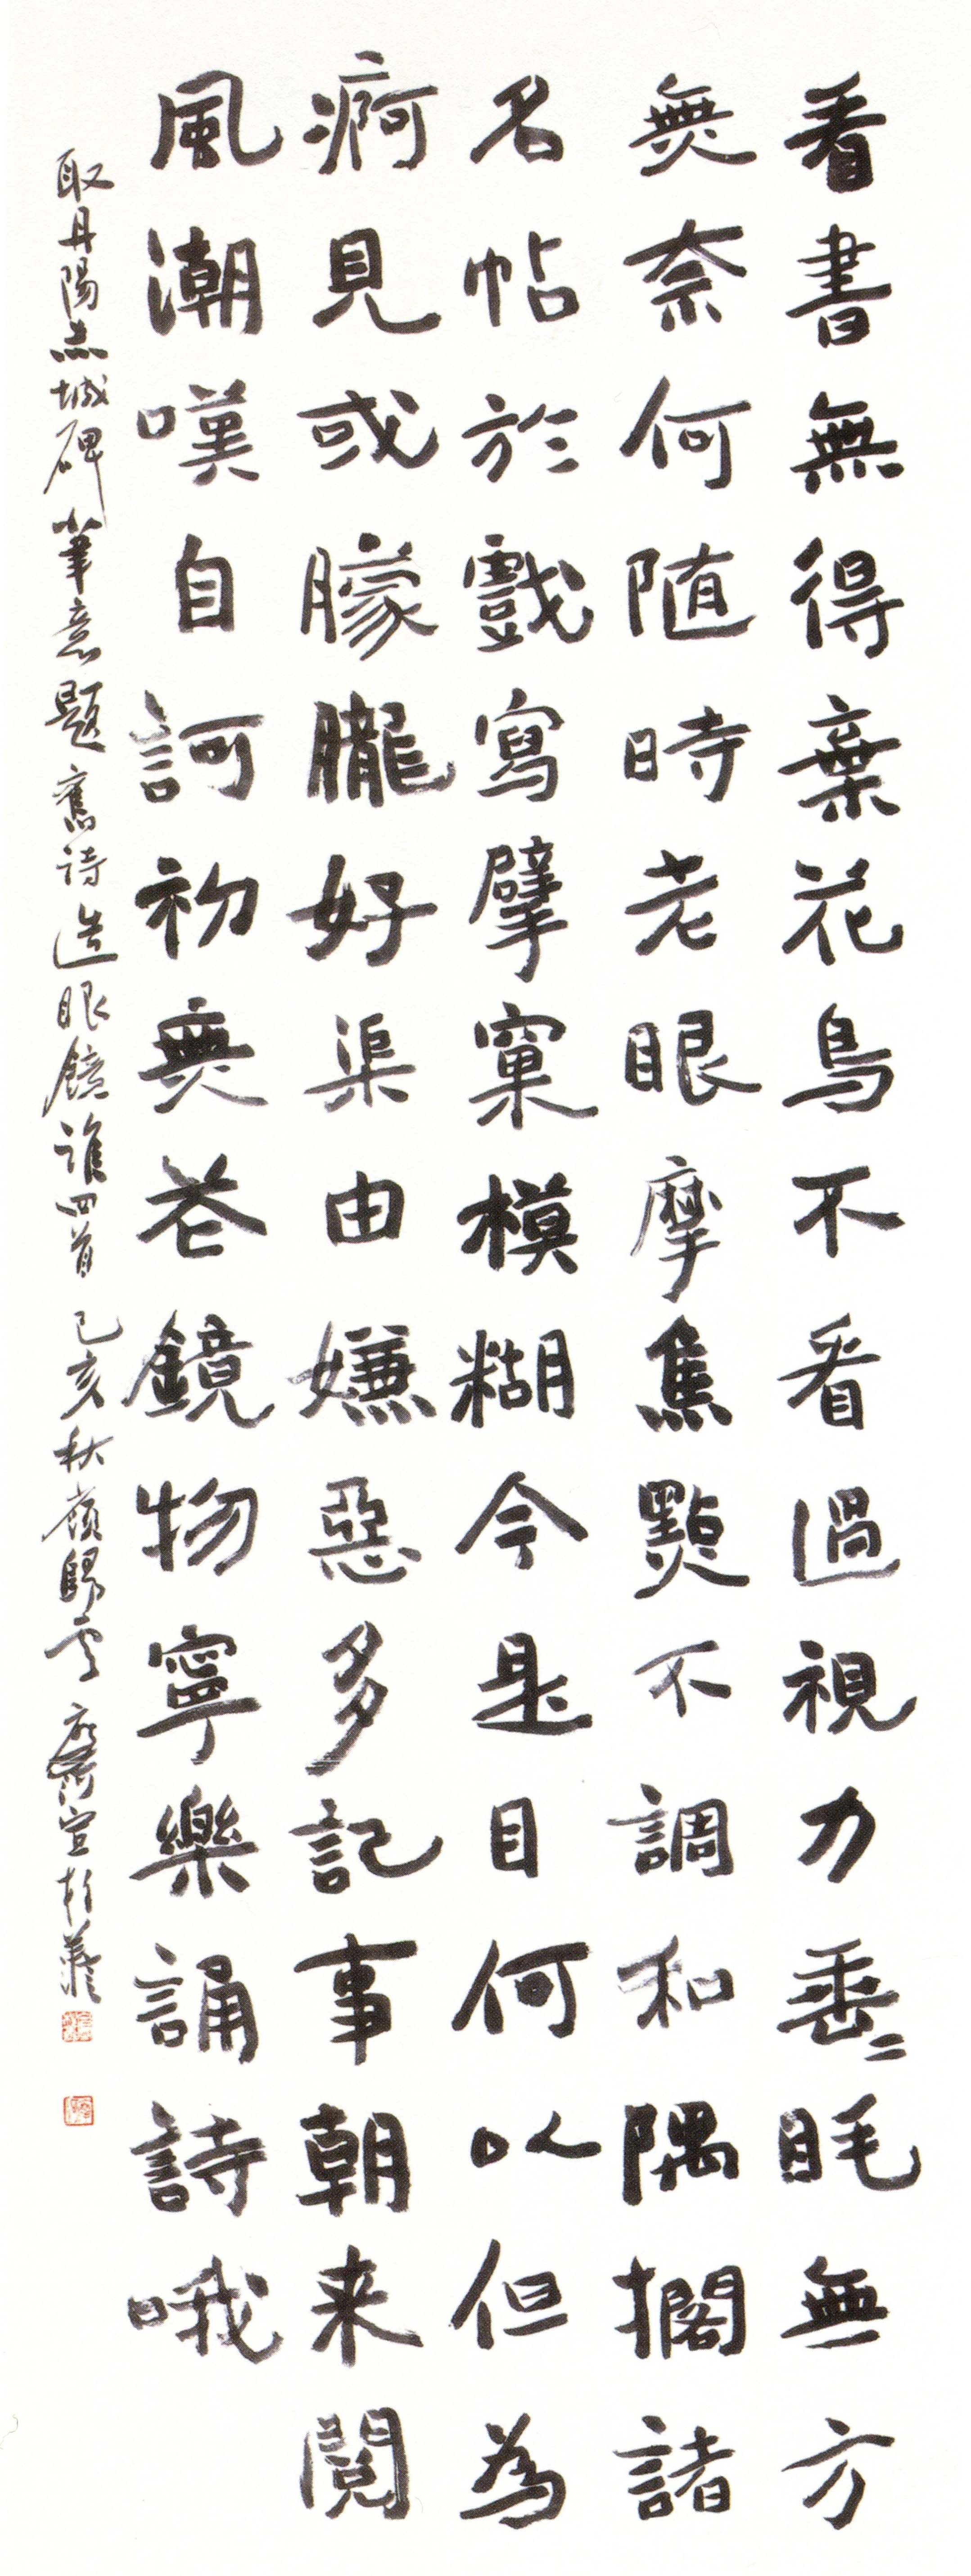 看書無得棄花鳥不看過視力垂〻眊無方
無奈何随時老眼摩焦點不調和隅擱諸
名帖於戲寫擘窠模糊今是目何以但為
痾見或朦朧好渠由嫌惡多記事朝来閱
風潮嘆自訶初無花鏡物寧樂誦詩哦
取丹陽城碑筆意題舊詩造眼鏡四首 己亥秋歸